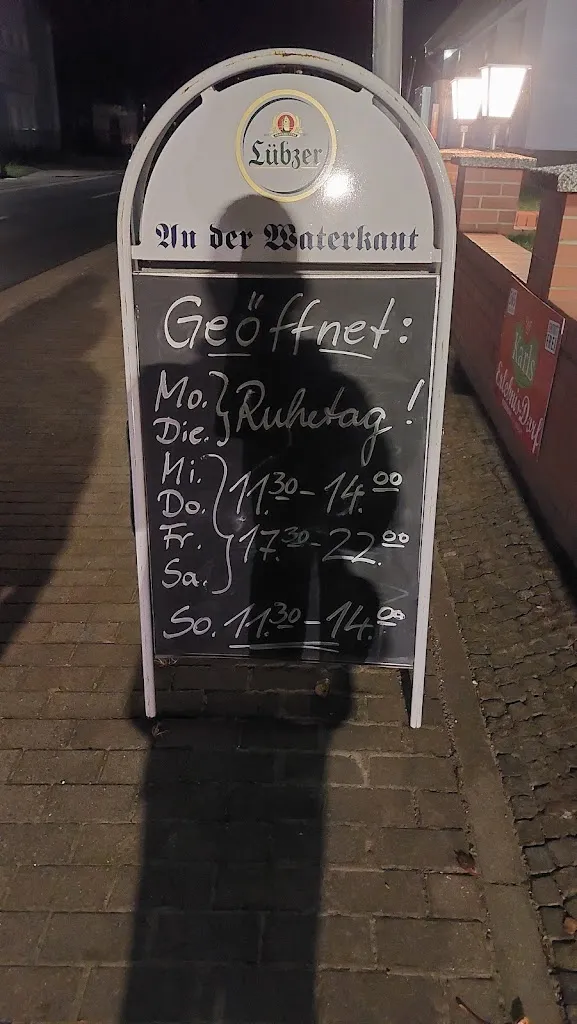 Lübzer
An der Waterkant
Geöffnet:
Mo.
Die. } Ruhetag!
Mi.
Do. 11.30 - 14.00
Fr. 17.30 - 22.00
Sa.
So. 11.30 - 14.00
Karls
Erlebnis-Dorf